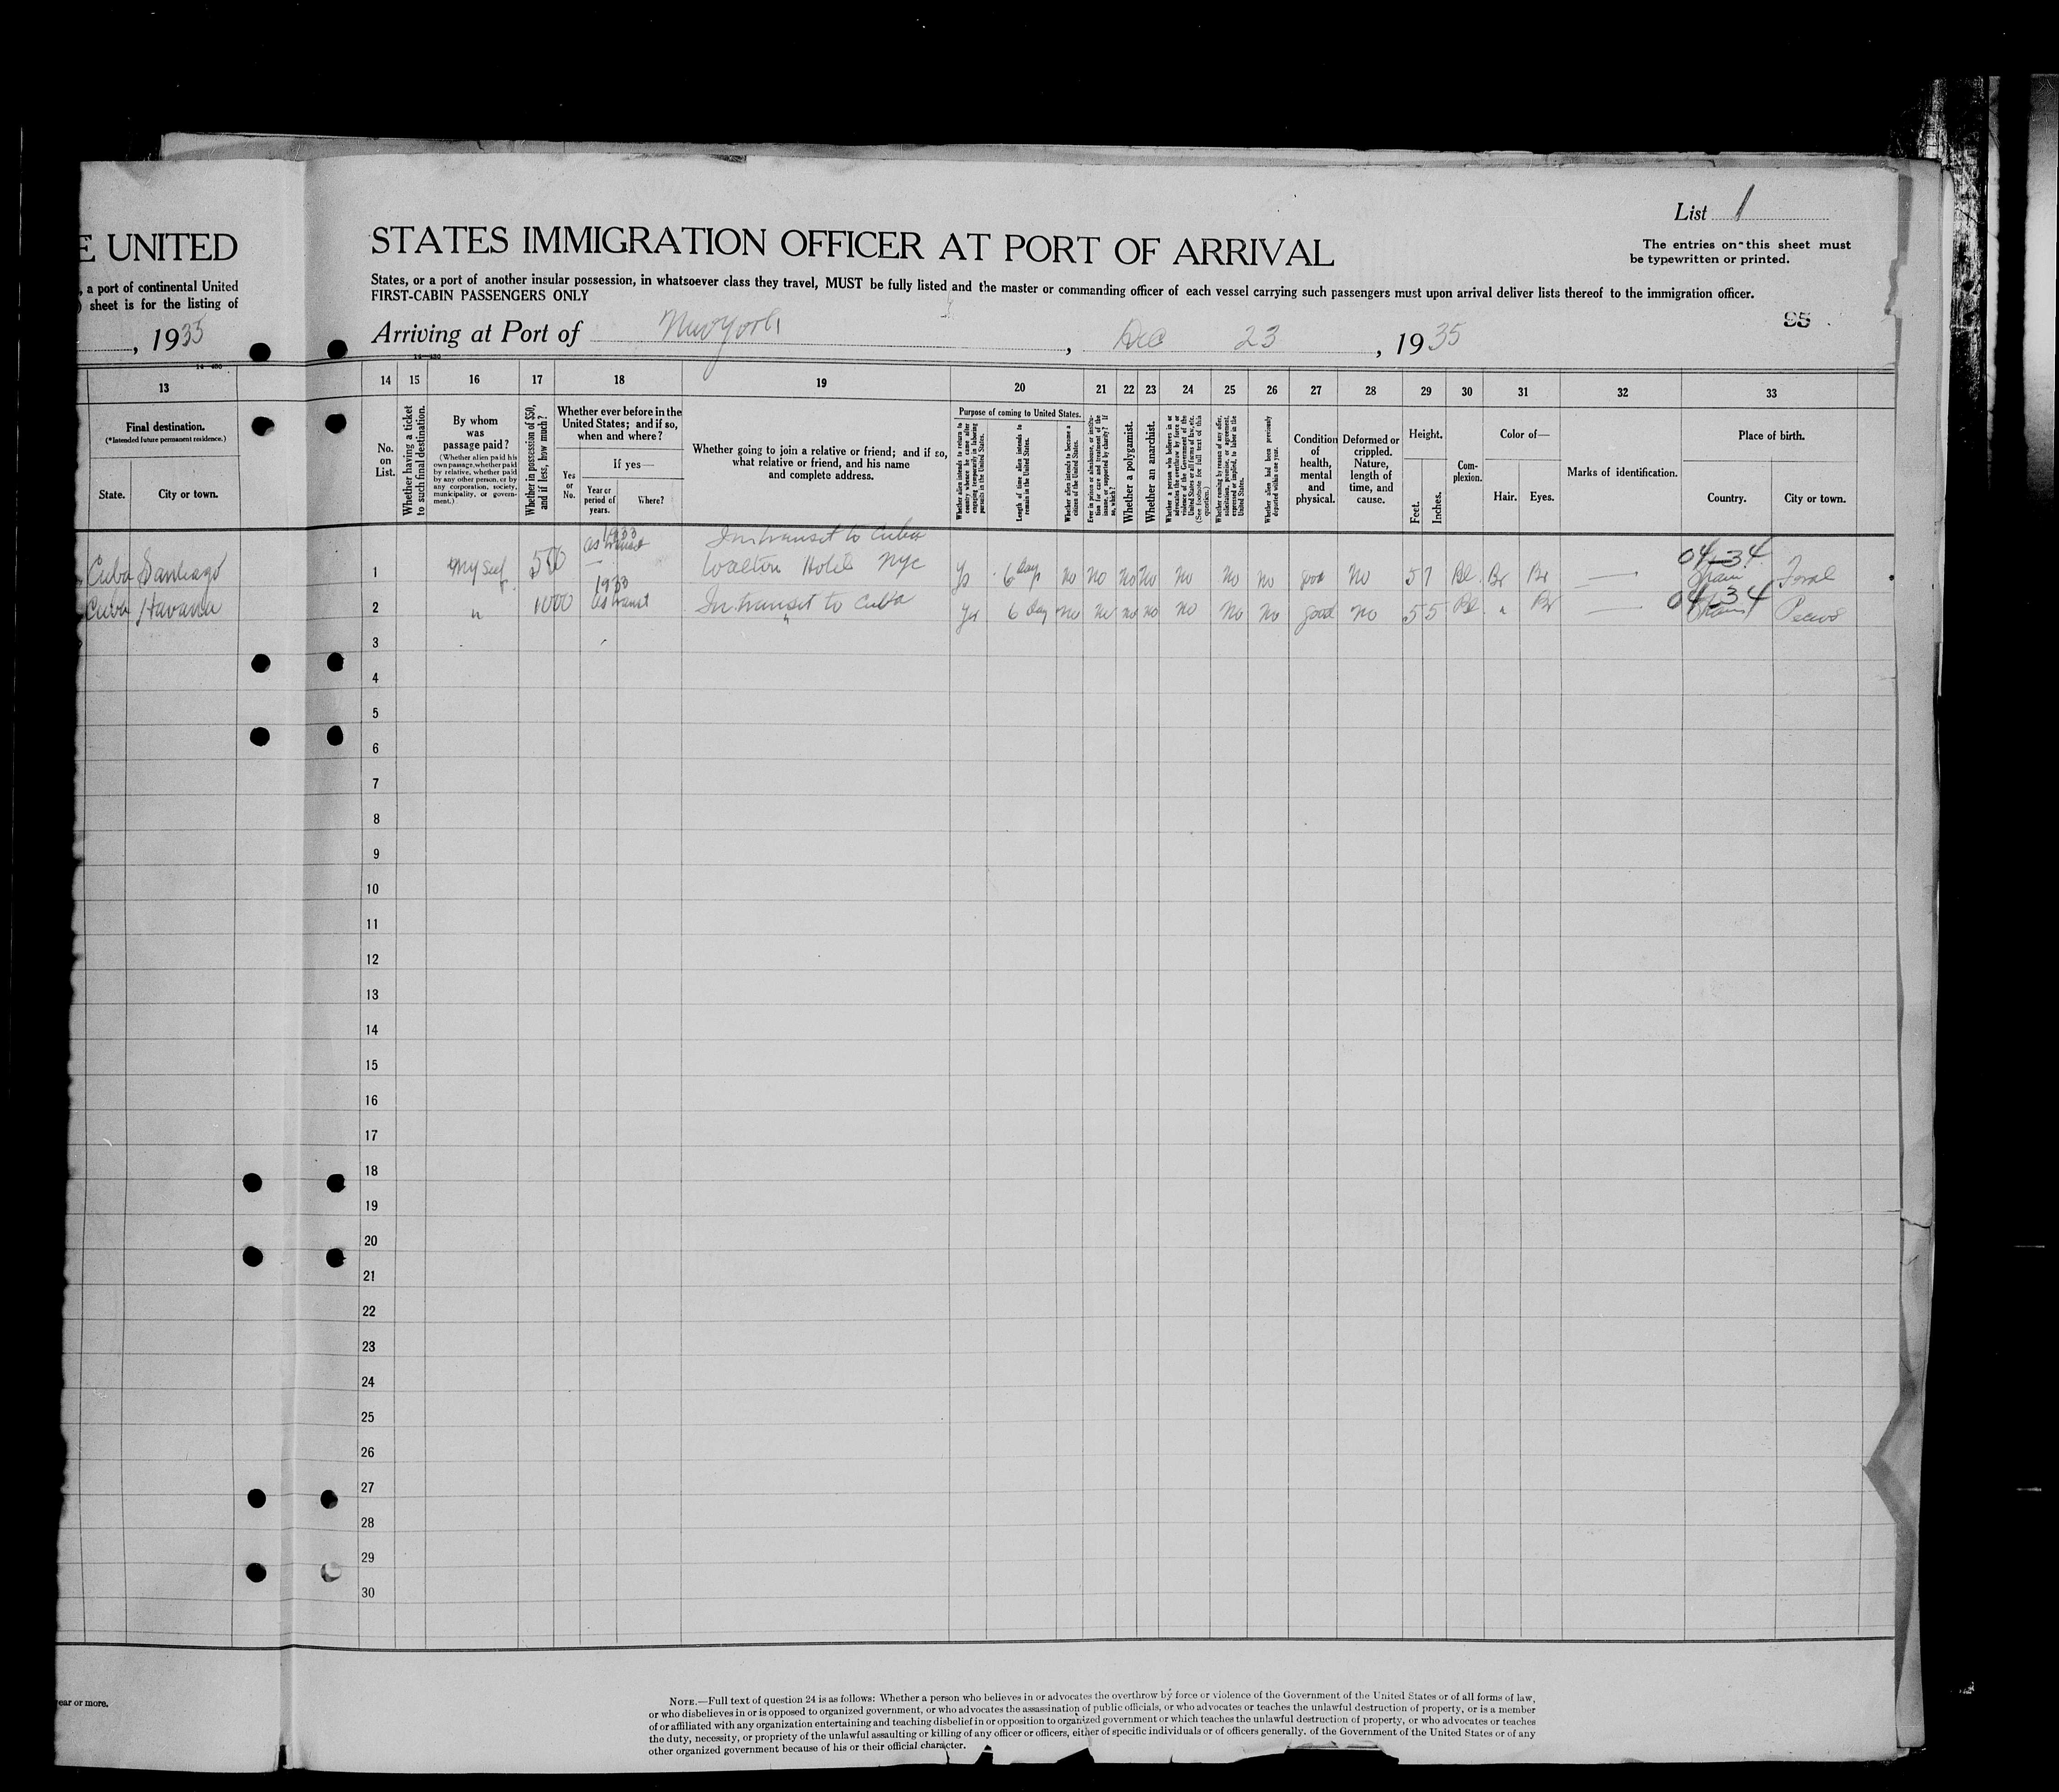 List 1
E UNITED
STATES IMMIGRATION OFFICER AT PORT OF ARRIVAL
The entries on this sheet must
be typewritten or printed.
, a port of continental United
) sheet is for the listing of
States, or a port of another insular possession, in whatsoever class they travel, MUST be fully listed and the master or commanding officer of each vessel carrying such passengers must upon arrival deliver lists thereof to the immigration officer.
FIRST-CABIN PASSENGERS ONLY
95
, 1935
Arriving at Port of New York, Dec 23, 1935
13 14 15 16 17 18 19 20 21 22 23 24 25 26 27 28 29 30 31 32 33
Final destination.
(*Intended future permanent residence.)
State.
City or town.
No. on List.
Whether having a ticket to such final destination.
By whom was passage paid?
(Whether alien paid his own passage, whether paid by relative, whether paid by any other person, or by any corporation, society, municipality, or government.)
Whether in possession of $50, and if less, how much?
Whether ever before in the United States; and if so, when and where?
Yes or No.
If yes—
Year or period of years.
Where?
Whether going to join a relative or friend; and if so, what relative or friend, and his name and complete address.
Purpose of coming to United States.
Whether alien intends to return to country whence he came after engaging temporarily in laboring pursuits in the United States.
Length of time alien intends to remain in the United States.
Whether alien intends to become a citizen of the United States.
Ever in prison or almshouse, or institution for care and treatment of the insane, or supported by charity? If so, which?
Whether a polygamist.
Whether an anarchist.
Whether a person who believes in or advocates the overthrow by force or violence of the Government of the United States or all forms of law, etc. (See footnote for full text of this question.)
Whether coming by reason of any offer, solicitation, promise, or agreement, expressed or implied, to labor in the United States.
Whether alien had been previously deported within one year.
Condition of health, mental and physical.
Deformed or crippled. Nature, length of time, and cause.
Height.
Feet.
Inches.
Complexion.
Color of—
Hair.
Eyes.
Marks of identification.
Place of birth.
Country.
City or town.
1933 In transit to Cuba 04-34
Cuba Santiago 1 Myself 500 as transit Walton Hotel NYC Ys 6 days No No No No No No No good No 5 7 Bl. Br Br — Spain
1933 04-34
Cuba Havana 2 " 1000 as transit In transit to Cuba Yes 6 day No No No No No No No good No 5 5 Bl " Br — Spain
"
3
4
5
6
7
8
9
10
11
12
13
14
15
16
17
18
19
20
21
22
23
24
25
26
27
28
29
30
ear or more.
NOTE.—Full text of question 24 is as follows: Whether a person who believes in or advocates the overthrow by force or violence of the Government of the United States or of all forms of law,
or who disbelieves in or is opposed to organized government, or who advocates the assassination of public officials, or who advocates or teaches the unlawful destruction of property, or is a member
of or affiliated with any organization entertaining and teaching disbelief in or opposition to organized government or which teaches the unlawful destruction of property, or who advocates or teaches
the duty, necessity, or propriety of the unlawful assaulting or killing of any officer or officers, either of specific individuals or of officers generally, of the Government of the United States or of any
other organized government because of his or their official character.